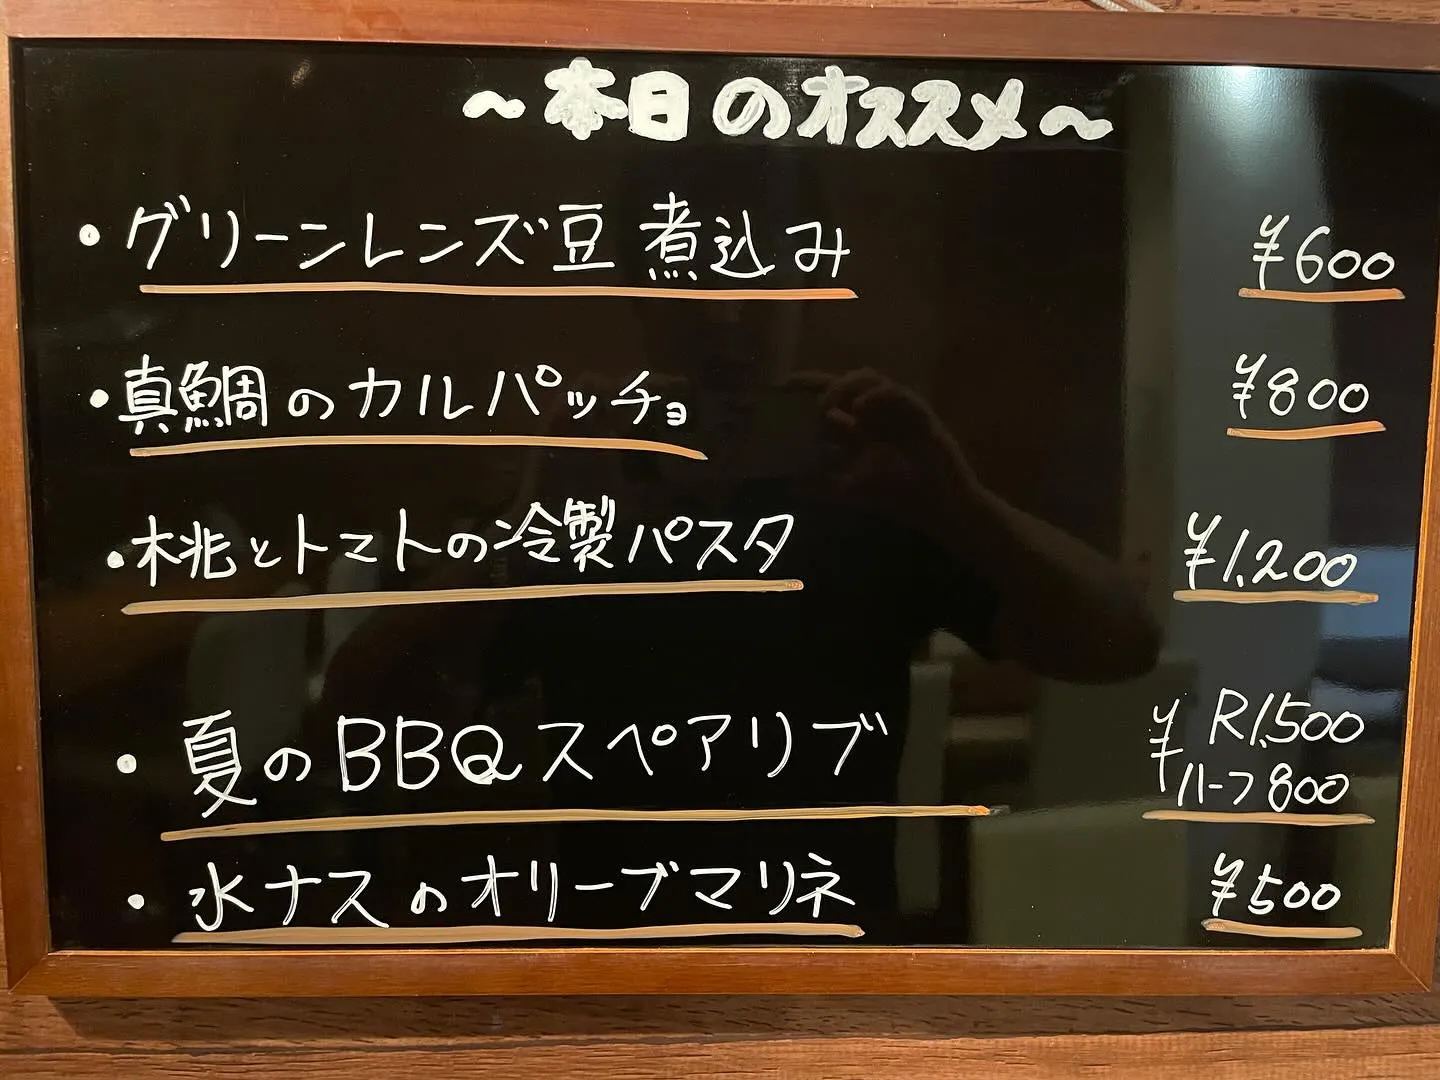 ～本日のオススメ～
・グリーンレンズ豆煮込み ¥600
・真鯛のカルパッチョ ¥800
・桃とトマトの冷製パスタ ¥1,200
・夏のBBQスペアリブ ¥R1,500
¥ハーフ800
・水ナスのオリーブマリネ ¥500